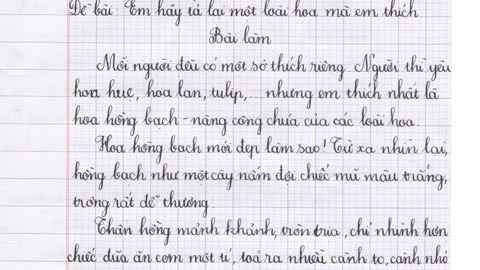 Đề bài: Em hãy tả lại một loài hoa mà em thích
Bài làm
Mỗi người đều có một sở thích riêng. Người thì yêu
hoa huệ, hoa lan, tulip,... nhưng em thích nhất là
hoa hồng bạch - nàng công chúa của các loài hoa.
Hoa hồng bạch mới đẹp làm sao! Từ xa nhìn lại,
hồng bạch như một cây nấm đội chiếc mũ màu trắng,
trông rất dễ thương.
Thân hồng mảnh khảnh, tròn trịa, chỉ nhỉnh hơn
chiếc đũa ăn cơm một tí, toả ra nhiều cành to, cành nhỏ